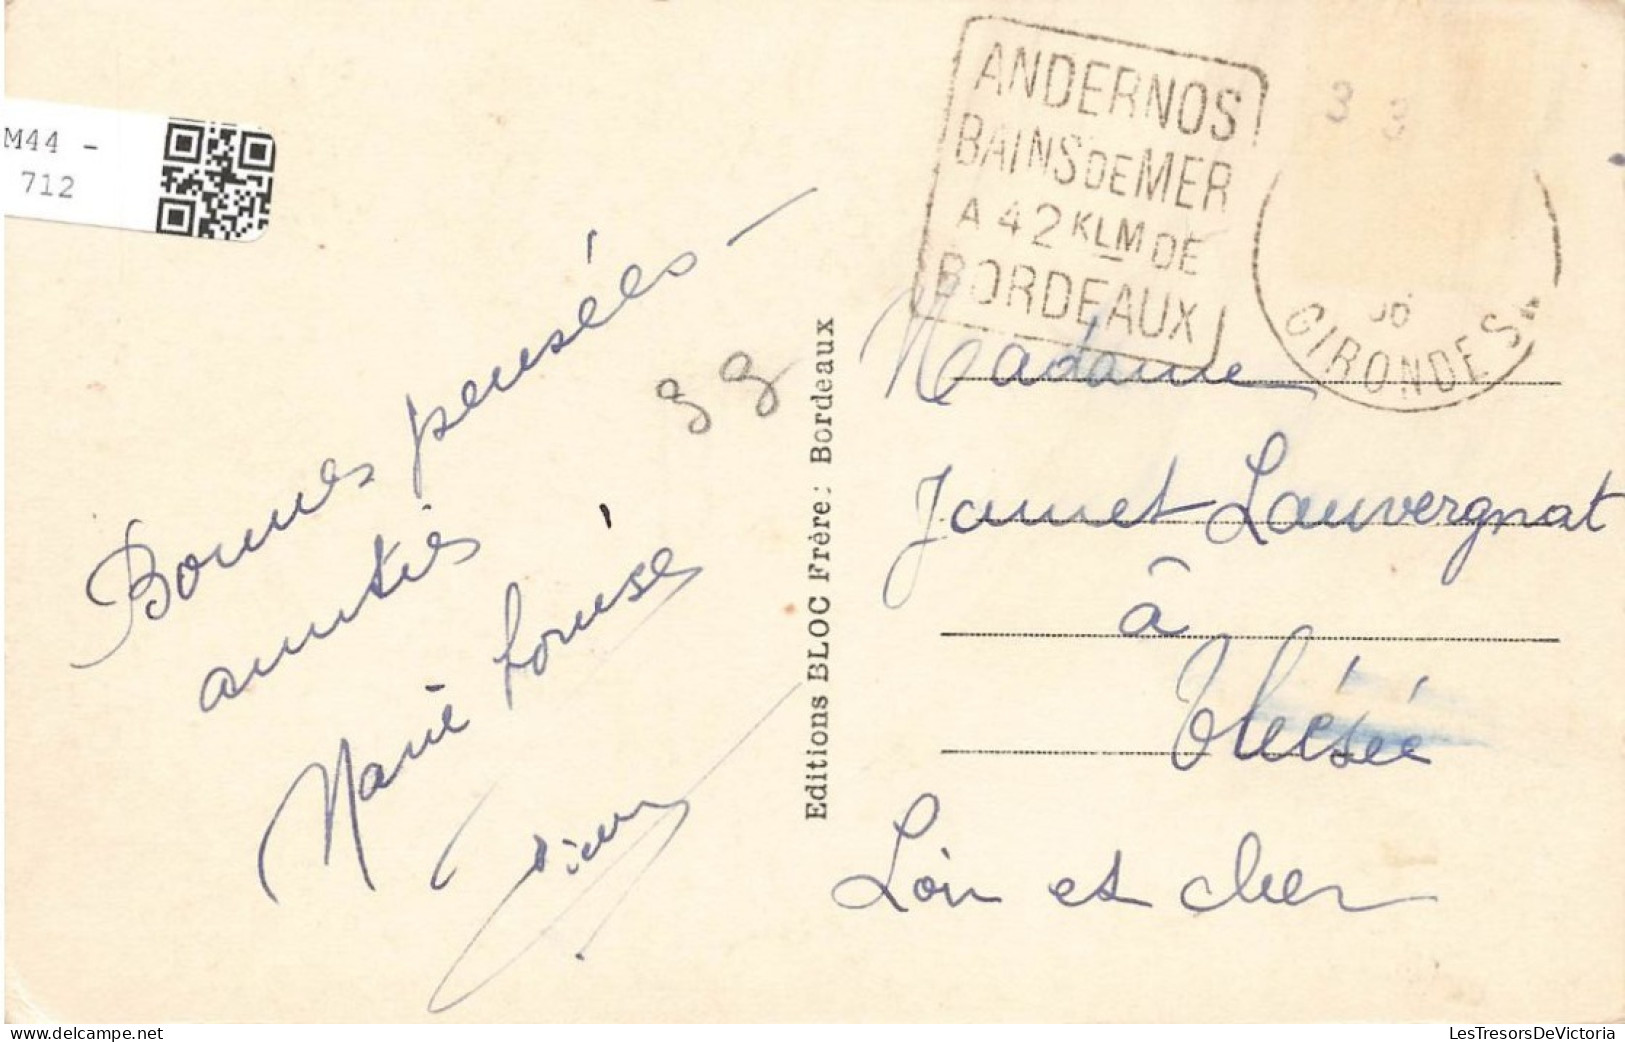 M44 -
712
ANDERNOS
BAINS DE MER
A 42 KLM DE
BORDEAUX
GIRONDE
33
Bonnes pensées –
amitiés
Marie Louise
33
Editions BLOC Frère; Bordeaux
Madame
Jamet Lauvergnat
à
Thésée
Loir et cher
LesTresorsDeVictoria